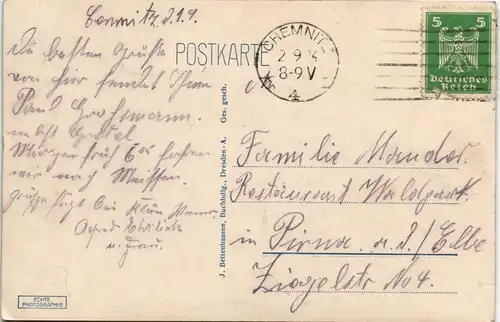 Chemnitz, d. 1.9.
Die besten Grüße
von hier sendet Ihnen
Paul Großmann
nebst
Morgen früh 6 fahren
wir nach Meissen.
Grüße fügt bei
Alfred Ehrlich
u. Frau.
POSTKARTE
CHEMNITZ
2 9
8-9 V
4
5 5
Deutsches
Reich
Familie Mander
Restaurant Waldpark
in Pirna a. d./Elbe
Ziegelstr No 4.
J. Bettenhausen, Buchhdlg., Dresden-A. Ges. gesch.
ECHTE
PHOTOGRAPHIE